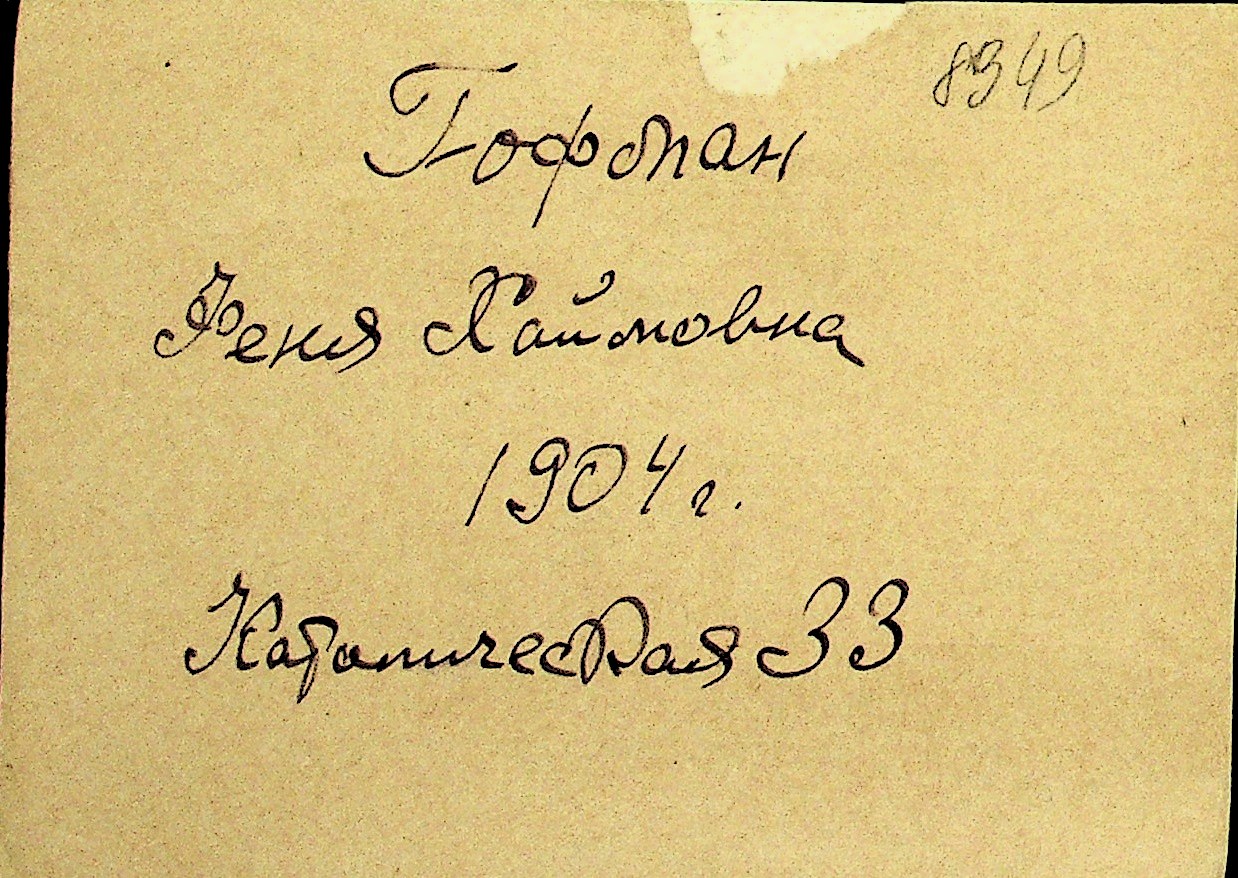 8349
Гофман
Феня Хаймовна
1904 г.
Католическая 33